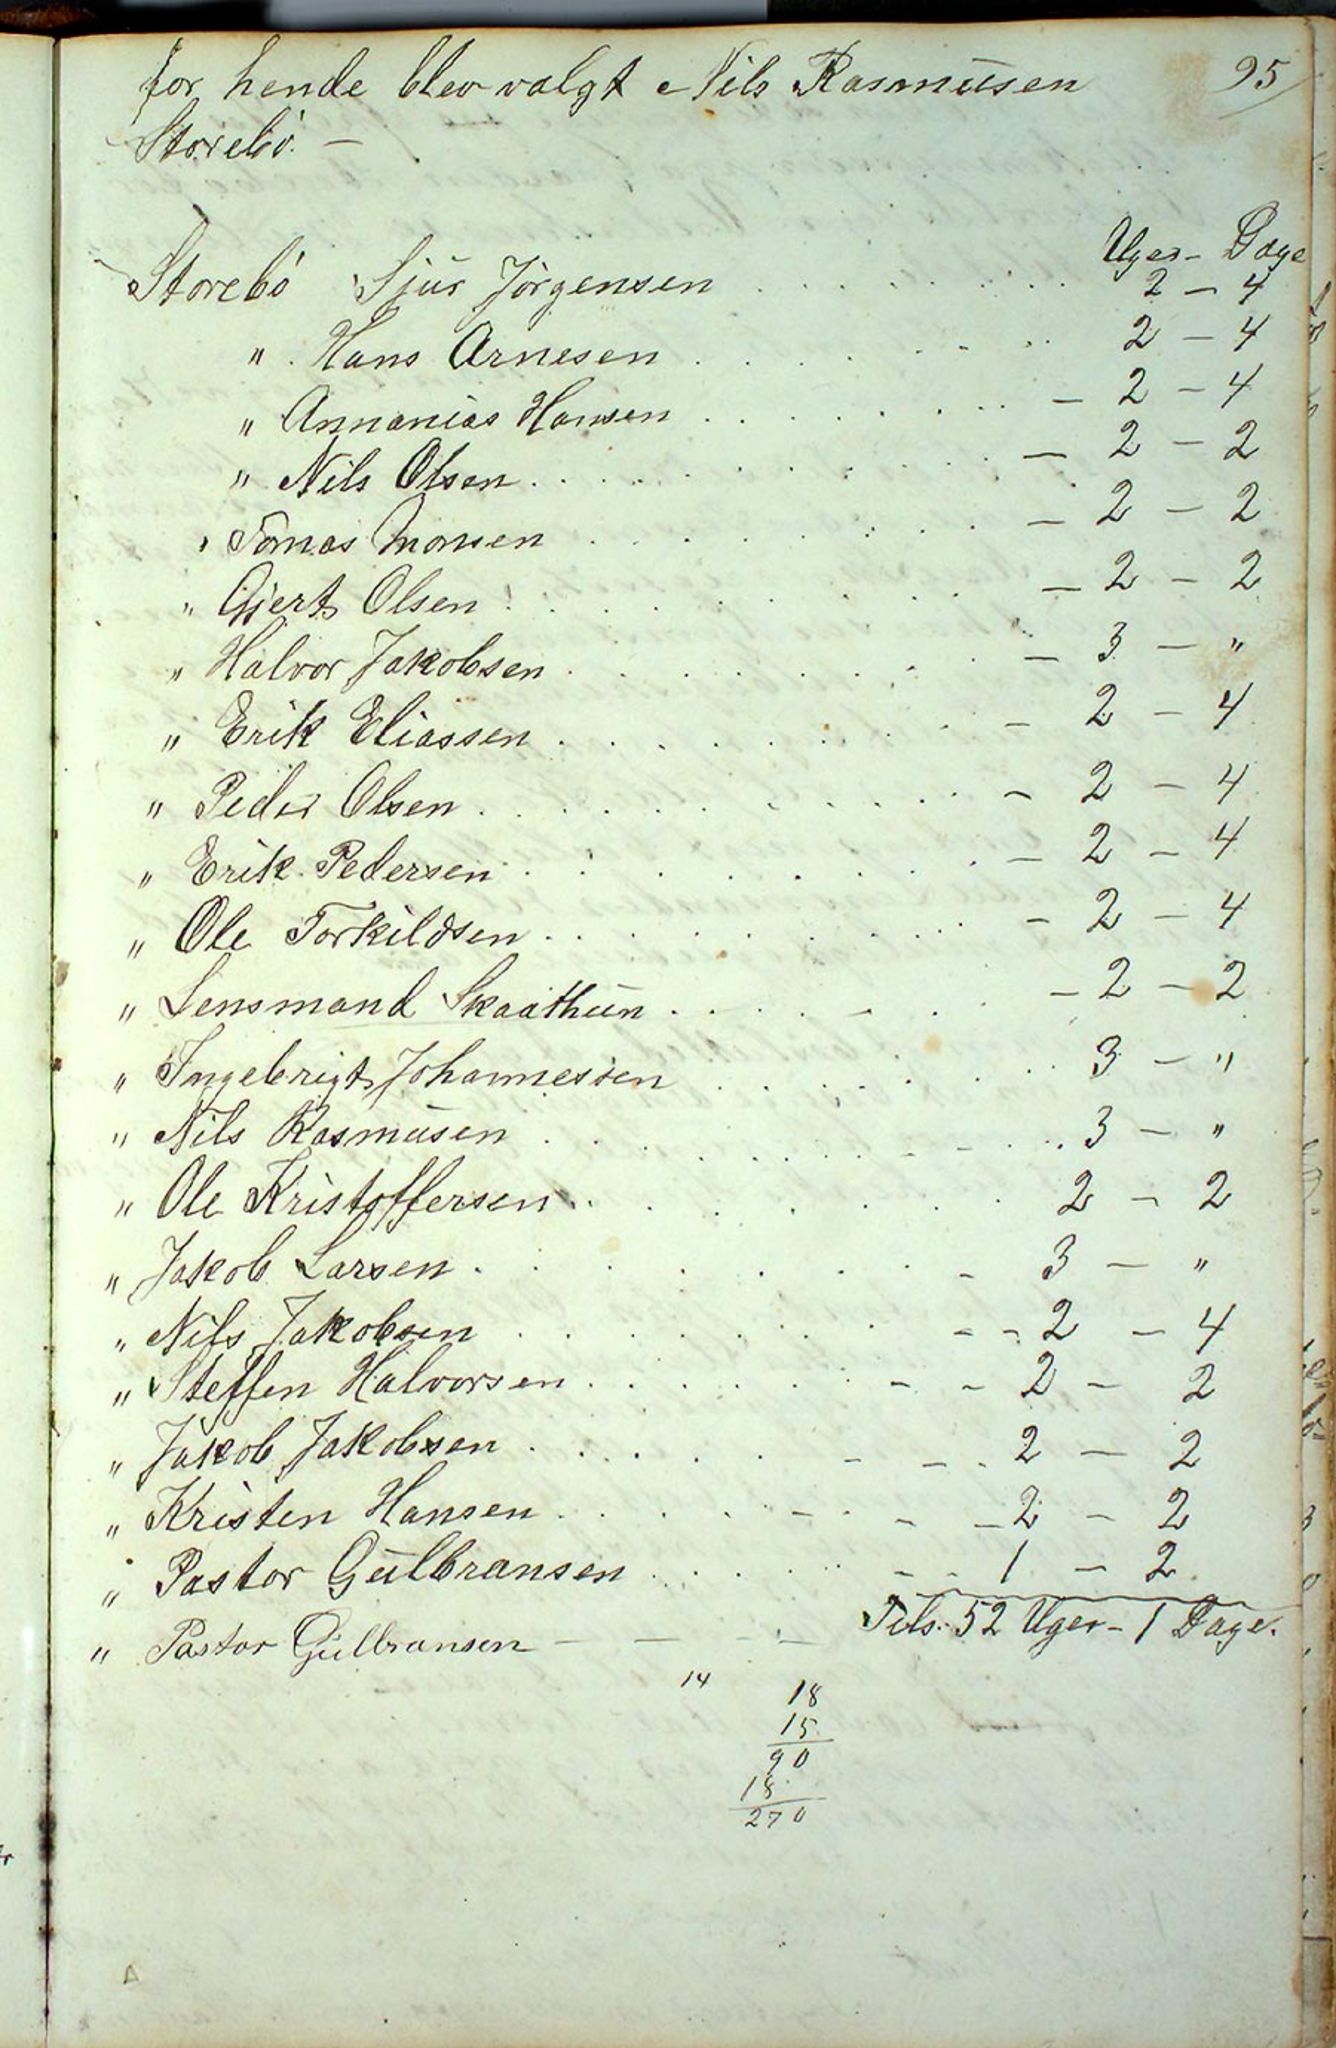 for hende blev valgt Nils Rasmüsen 95
Storebö. —
Uger - Dage
Storebö Sjür Jörgensen . . . . . . . . . 2 - 4
" Hans Arnesen . . . . . . . . 2 - 4
" Annanias Hansen . . . . . . . . - 2 - 4
" Nils Olsen . . . . . . . . . - 2 - 2
" Tomas Monsen . . . . . . . . - 2 - 2
" Gjert Olsen . . . . . . . . - 2 - 2
" Halvor Jakobsen . . . . . . . . - 3 - "
" Erik Eliassen . . . . . . . . - 2 - 4
" Peder Olsen . . . . . . . . . - 2 - 4
" Erik Pedersen . . . . . . . . - 2 - 4
" Ole Torkildsen . . . . . . . . - 2 - 4
" Lensmand Skaathün . . . . . . - 2 - 2
" Ingebrigt Johannessen . . . . . . . 3 - "
" Nils Rasmüsen . . . . . . . . 3 - "
" Ole Kristoffersen . . . . . . . . 2 - 2
" Jakob Larsen . . . . . . . . - 3 - "
" Nils Jakobsen . . . . . . . - - 2 - 4
" Steffen Halvorsen . . . . . . - - 2 - 2
" Jakob Jakobsen . . . . . - - . 2 - 2
" Kristen Hansen . . . . - . - - 2 - 2
" Pastor Gülbransen . . . . . - - 1 - 2
Tils. 52 Uger - 1 Dage.
" Pastor Gülbransen — — — —
14 18
15
90
18
270